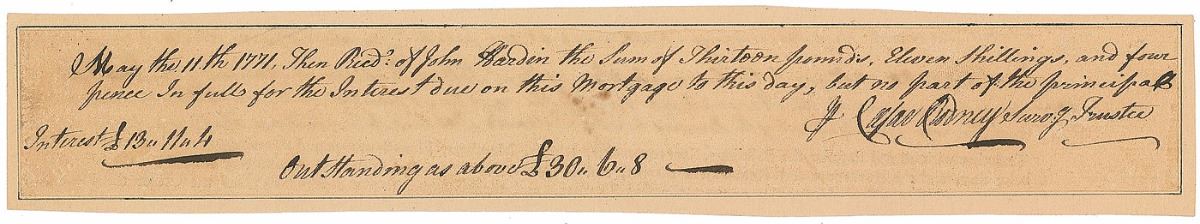 May the 11th 1771. Then Recd. of John Hardin the Sum of Thirteen pounds, Eleven Shillings, and four
pence In full for the Interest due on this Mortgage to this day, but no part of the principall
Caesar Rodney Trustee
Interest £13 " 11 " 4
Outstanding as above £30 " 6 " 8